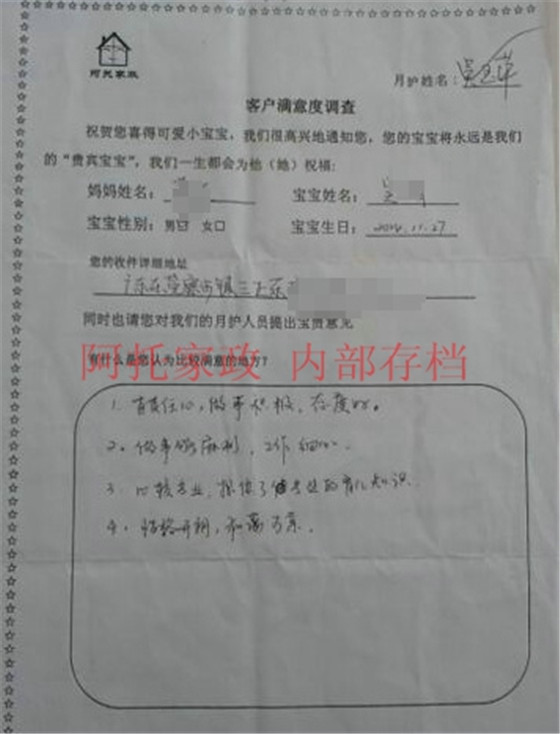 阿托家政
月护姓名：吴玉萍
客户满意度调查
祝贺您喜得可爱小宝宝，我们很高兴地通知您，您的宝宝将永远是我们
的“贵宾宝宝”，我们一生都会为他（她）祝福：
妈妈姓名： 宝宝姓名：
宝宝性别：男口 女口 宝宝生日：2014.11.27
您的收件详细地址
广东 镇三
同时也请您对我们的月护人员提出宝贵意见
有什么是您认为比较满意的地方？
阿托家政 内部存档
1. 有责任心，做事积极，态度好。
2. 做事麻利，工作细心.
3. 比较专业，提供了很多的育儿知识.
4. 性格开朗，和蔼可亲.